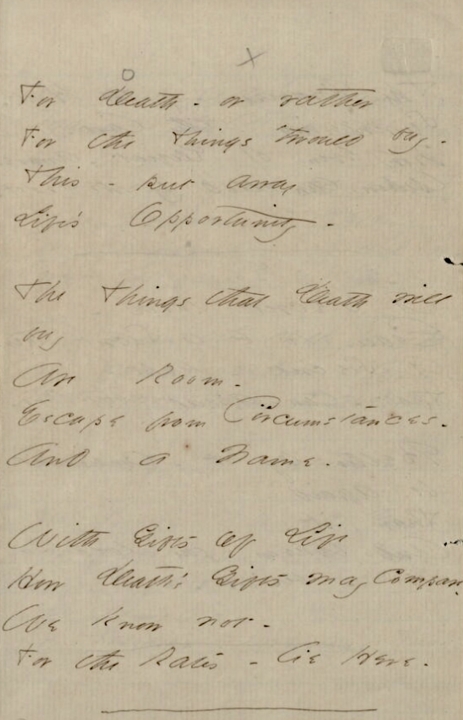 For Death - or rather
For the Things 'twould buy -
This - put away
Life's Opportunity -
The Things that Death will
buy
Are Room -
Escape from Circumstances -
And a Name -
With Gifts of Life
How Death's Gifts may Compare
We know not -
For the Rates - lie Here -